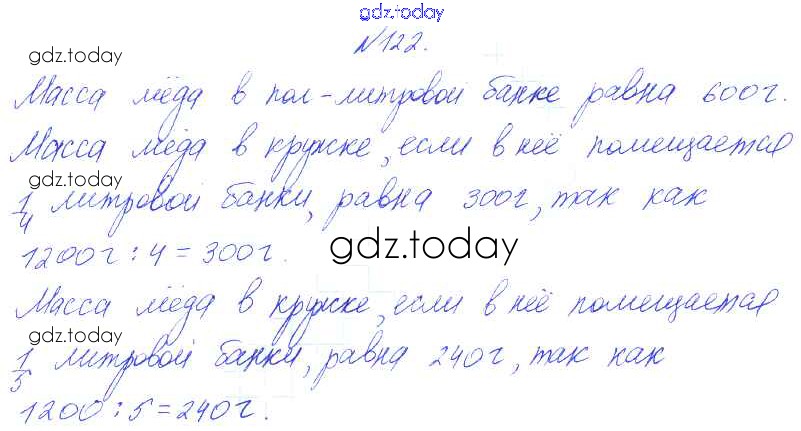 gdz.today
№122.
gdz.today
Масса мёда в пол-литровой банке равна 600г.
Масса мёда в кружке, если в неё помещается
gdz.today
1/4 литровой банки, равна 300г, так как
1200г : 4 = 300г.
gdz.today
Масса мёда в кружке, если в неё помещается
gdz.today
1/5 литровой банки, равна 240г, так как
1200 : 5 = 240г.